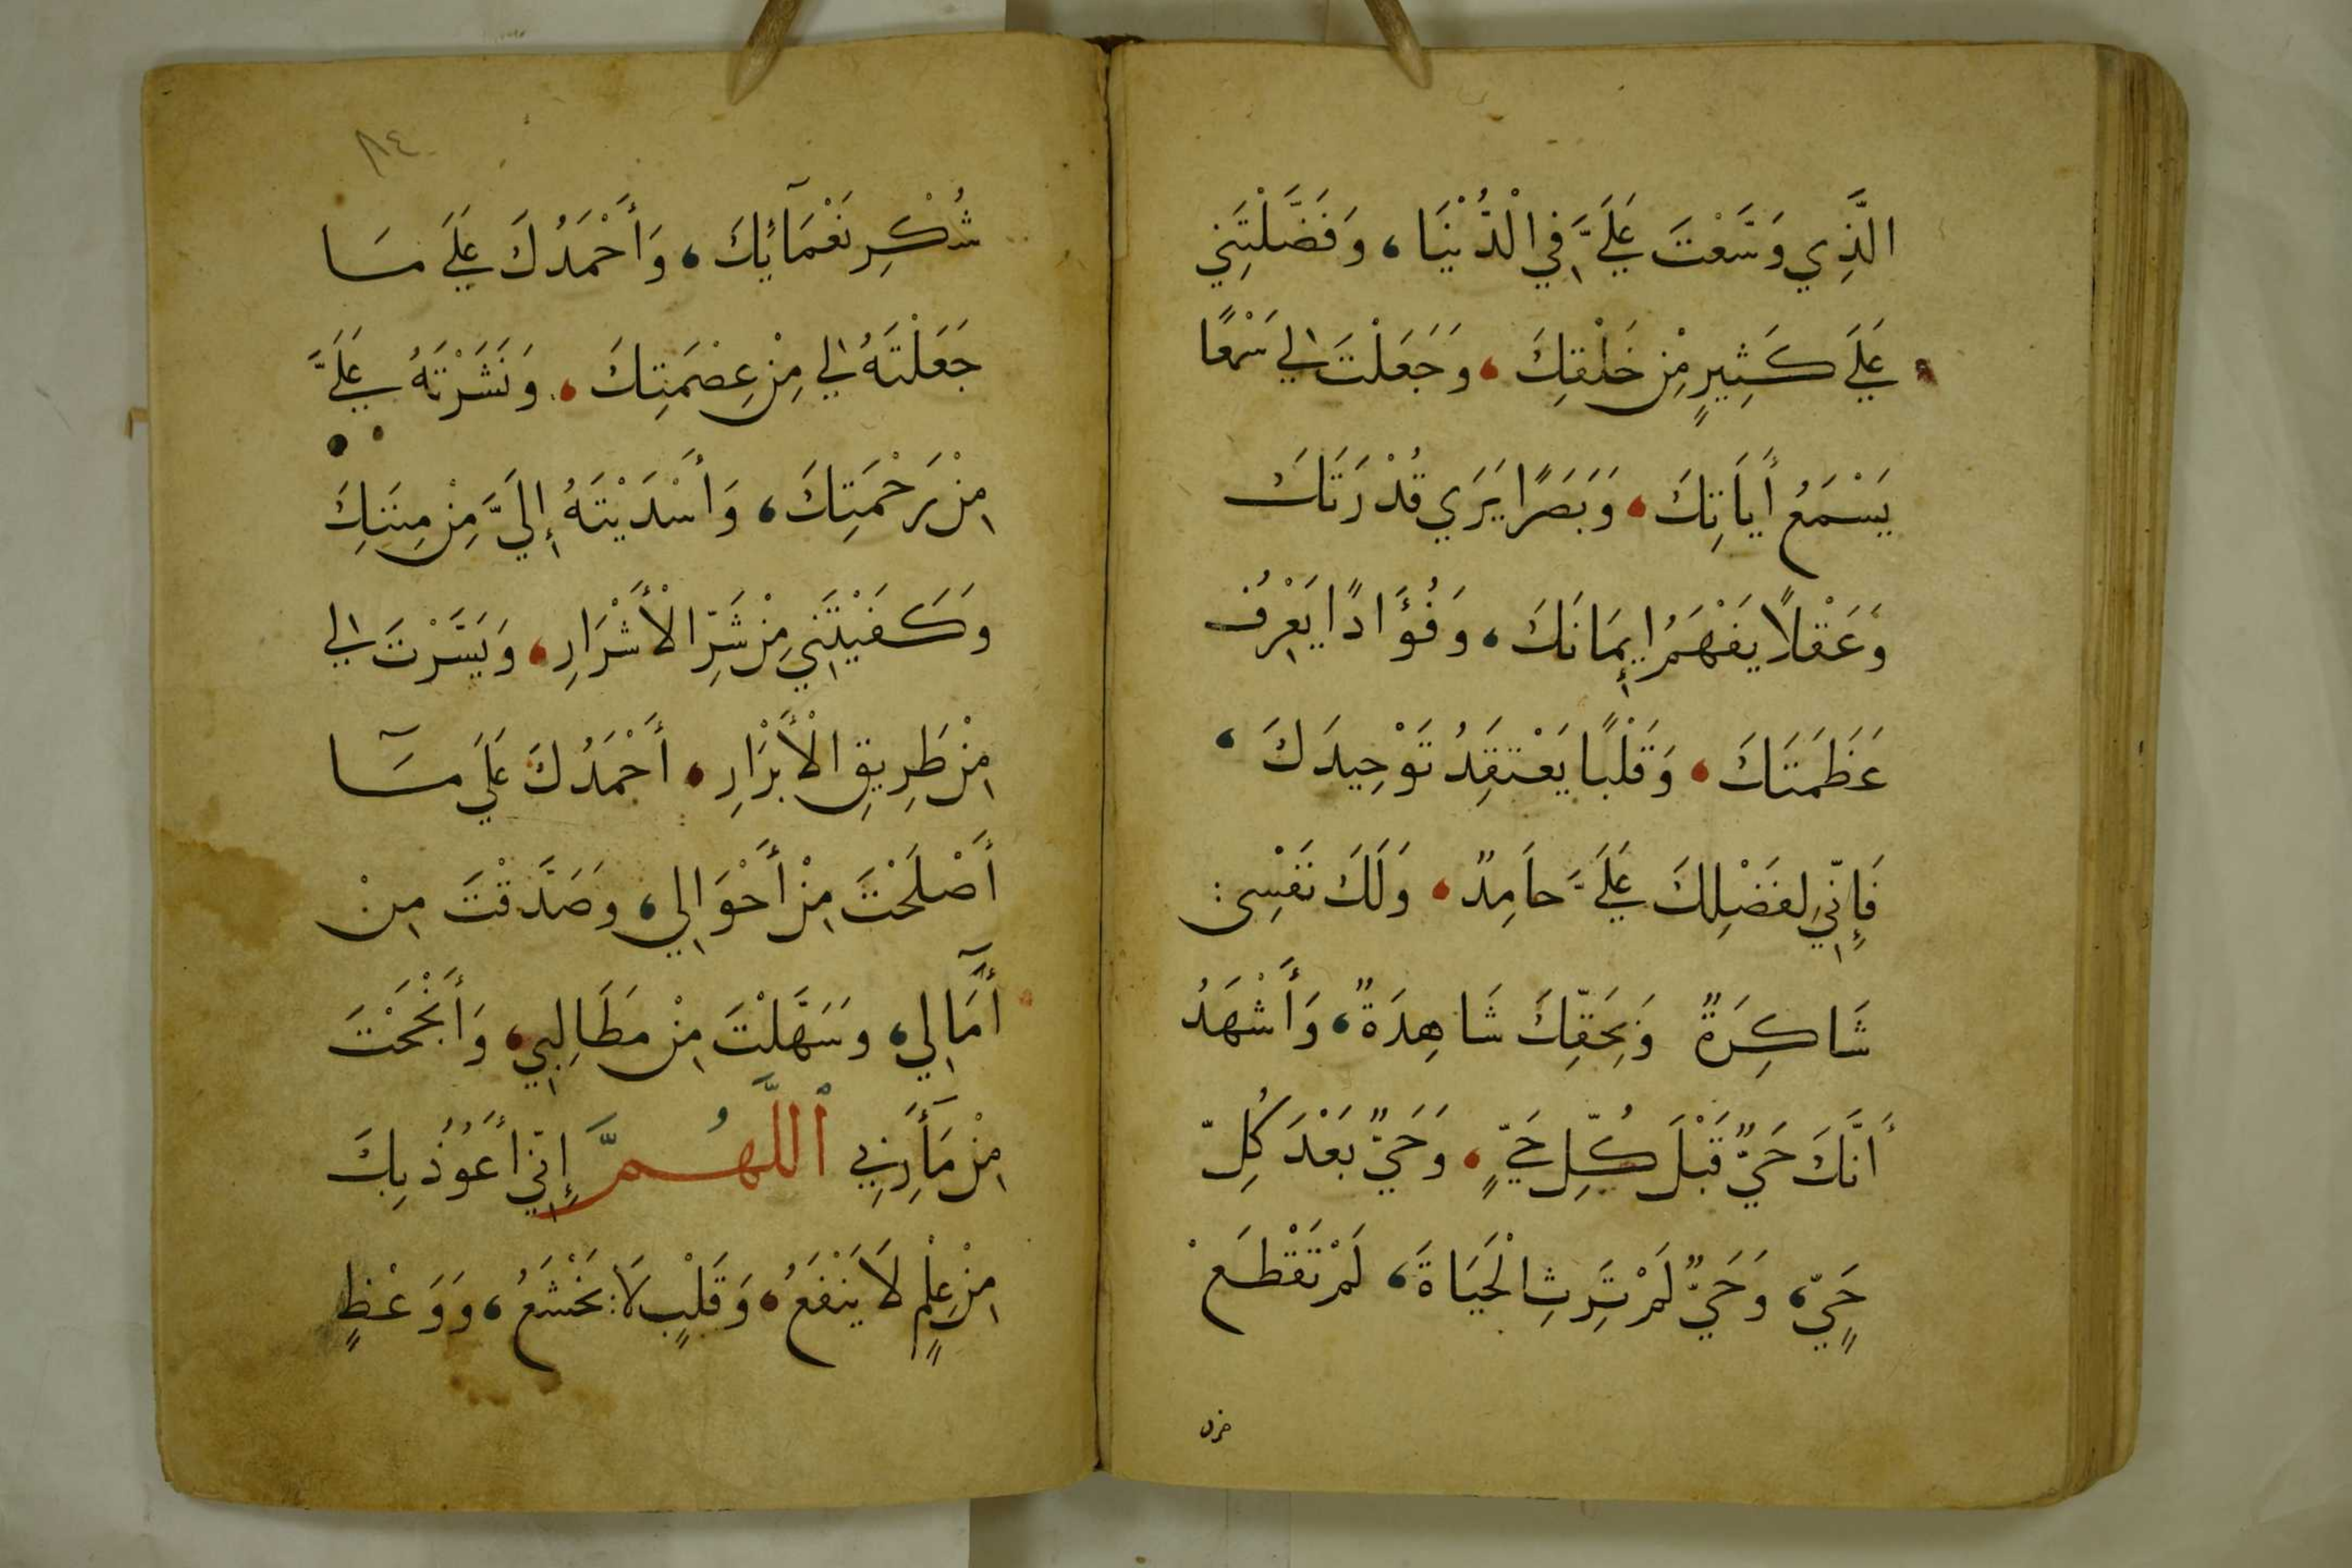 الَّذِي وَسَّعْتَ عَلَيَّ فِي الْدُّنْيَا، وَفَضَّلْتَنِي
عَلَي كَثِيرٍ مِنْ خَلْقِكَ، وَجَعَلْتَ لِي سَمْعًا
يَسْمَعُ أَيَاتِكَ، وَبَصَرًا يَرَي قُدْرَتَكَ
وَعَقْلًا يَفْهَمُ إِيمَانَكَ، وَفُؤَادًا يَعْرِفُ
عَظَمَتَكَ، وَقَلْبًا يَعْتَقِدُ تَوْحِيدَكَ،
فَإِنِّي لِفَضْلِكَ عَلَيَّ حَامِدٌ، وَلَكَ نَفْسِى
شَاكِرَةٌ وَبِحَقِّكَ شَاهِدَةٌ، وَأَشْهَدُ
أَنَّكَ حَيٌّ قَبْلَ كُلِّ حَيٍّ، وَحَيٌّ بَعْدَ كُلِّ
حَيٍّ، وَحَيٌّ لَمْ تَرِثِ الْحَيَاةَ، لَمْ تَقْطَعْ
٨٤
شُكْرِ نَعْمَآئِكَ، وَأَحْمَدُكَ عَلَي مَا
جَعَلْتَهُ لِي مِنْ عِصْمَتِكَ، وَنَشَرْتَهُ عَلَيَّ
مِنْ رَحْمَتِكَ، وَأَسْدَيْتَهُ إِلَيَّ مِنْ مِنَنِكَ
وَكَفَيْتَنِي مِنْ شَرِّ الْأَشْرَارِ، وَيَسَّرْتَ لِي
مِنْ طَرِيقِ الْأَبْرَارِ، أَحْمَدُكَ عَلَي مَآ
أَصْلَحْتَ مِنْ أَحْوَالِي، وَصَدَّقْتَ مِنْ
أَمَالِي، وَسَهَّلْتَ مِنْ مَطَالِبِي، وَأَنْجَحْتَ
مِنْ مَأَرِبِي اَللَّهُمَّ إِنِّي أَعُوْذُ بِكَ
مِنْ عِلْمٍ لَا يَنْفَعُ، وَقَلْبٍ لَا يَخْشَعُ، وَوَعْظٍ